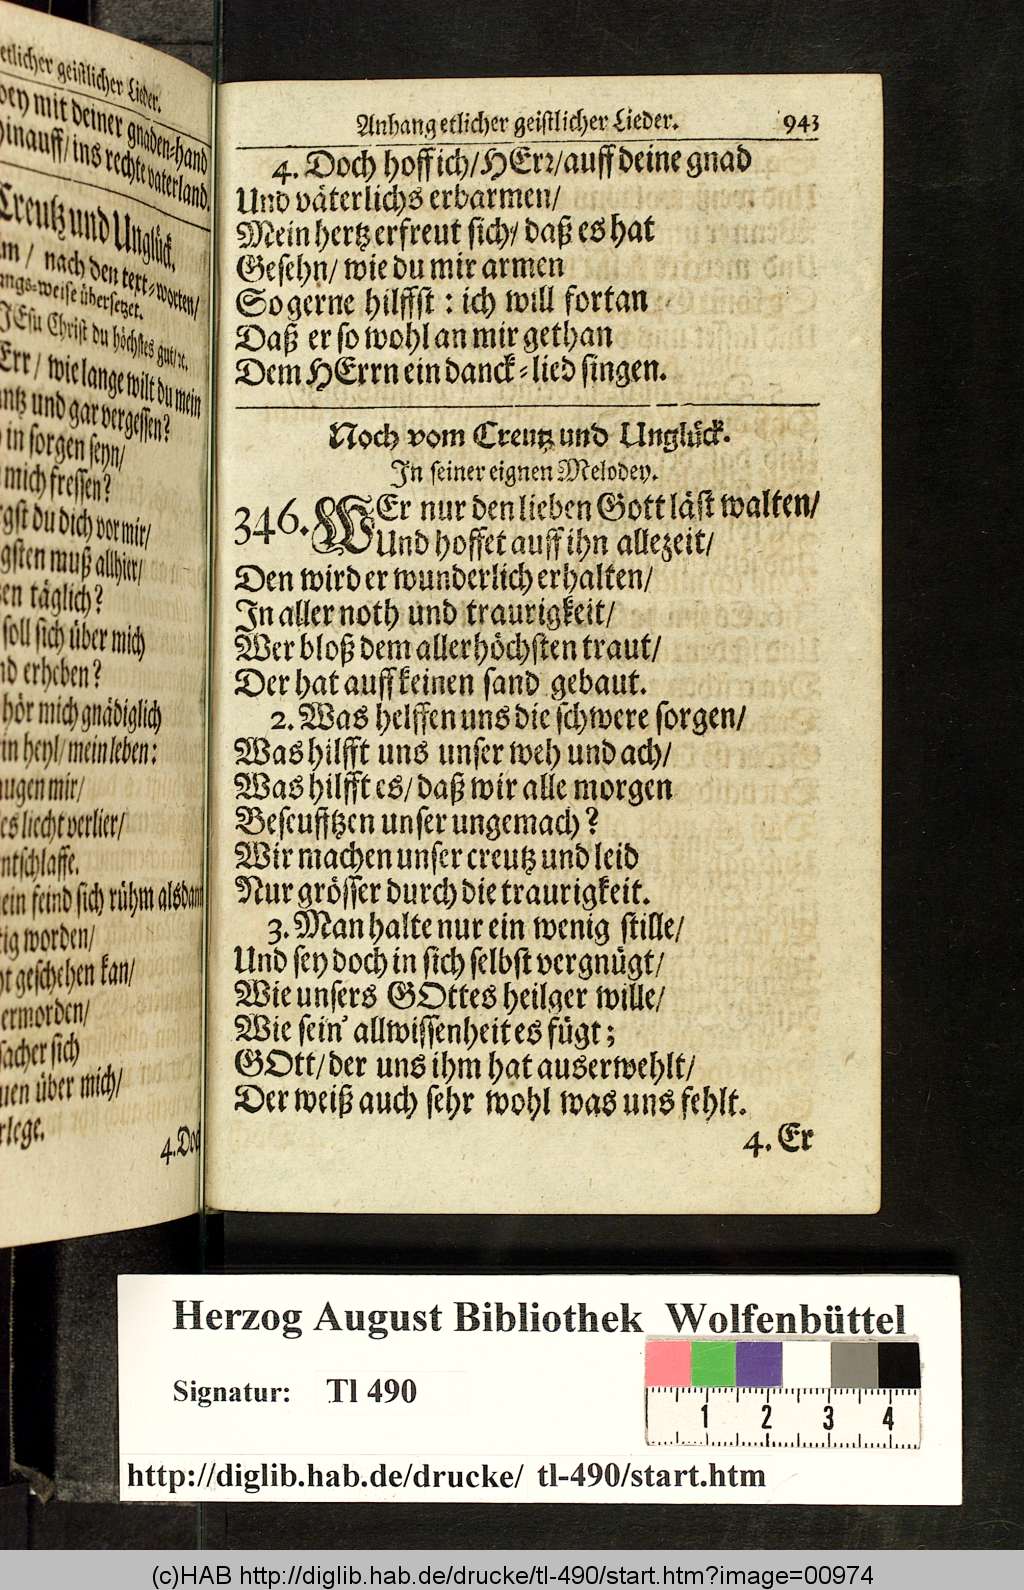 etlicher geistlicher Lieder.
mit deiner gnaden-hand
hinauff/ ins rechte vaterland.
Creutz und Unglück.
nach den text-worten/
übersetzet.
JEsu Christ du höchstes gut/ ꝛc.
wie lange wilt du mein
und gar vergessen?
in sorgen seyn/
mich fressen?
du dich vor mir/
muß allhier/
täglich?
soll sich über mich
erheben?
hör mich gnädiglich
heyl/ mein leben:
augen mir/
es liecht verlier/
entschlaffe.
feind sich rühm alsdann
worden/
geschehen kan/
ermorden/
sich
über mich/
4. Doch
Anhang etlicher geistlicher Lieder. 943
4. Doch hoff ich/ HErr/ auff deine gnad
Und väterlichs erbarmen/
Mein hertz erfreut sich/ daß es hat
Gesehn/ wie du mir armen
So gerne hilffst: ich will fortan
Daß er so wohl an mir gethan
Dem HErrn ein danck-lied singen.
Noch vom Creutz und Unglück.
In seiner eignen Melodey.
346. WEr nur den lieben Gott läst walten/
Und hoffet auff ihn allezeit/
Den wird er wunderlich erhalten/
In aller noth und traurigkeit/
Wer bloß dem allerhöchsten traut/
Der hat auff keinen sand gebaut.
2. Was helffen uns die schwere sorgen/
Was hilfft uns unser weh und ach/
Was hilfft es/ daß wir alle morgen
Beseufftzen unser ungemach?
Wir machen unser creutz und leid
Nur grösser durch die traurigkeit.
3. Man halte nur ein wenig stille/
Und sey doch in sich selbst vergnügt/
Wie unsers GOttes heilger wille/
Wie sein' allwissenheit es fügt;
GOtt/ der uns ihm hat auserwehlt/
Der weiß auch sehr wohl was uns fehlt.
4. Er
Herzog August Bibliothek Wolfenbüttel
Signatur: Tl 490
1 2 3 4
http://diglib.hab.de/drucke/ tl-490/start.htm
(c)HAB http://diglib.hab.de/drucke/tl-490/start.htm?image=00974